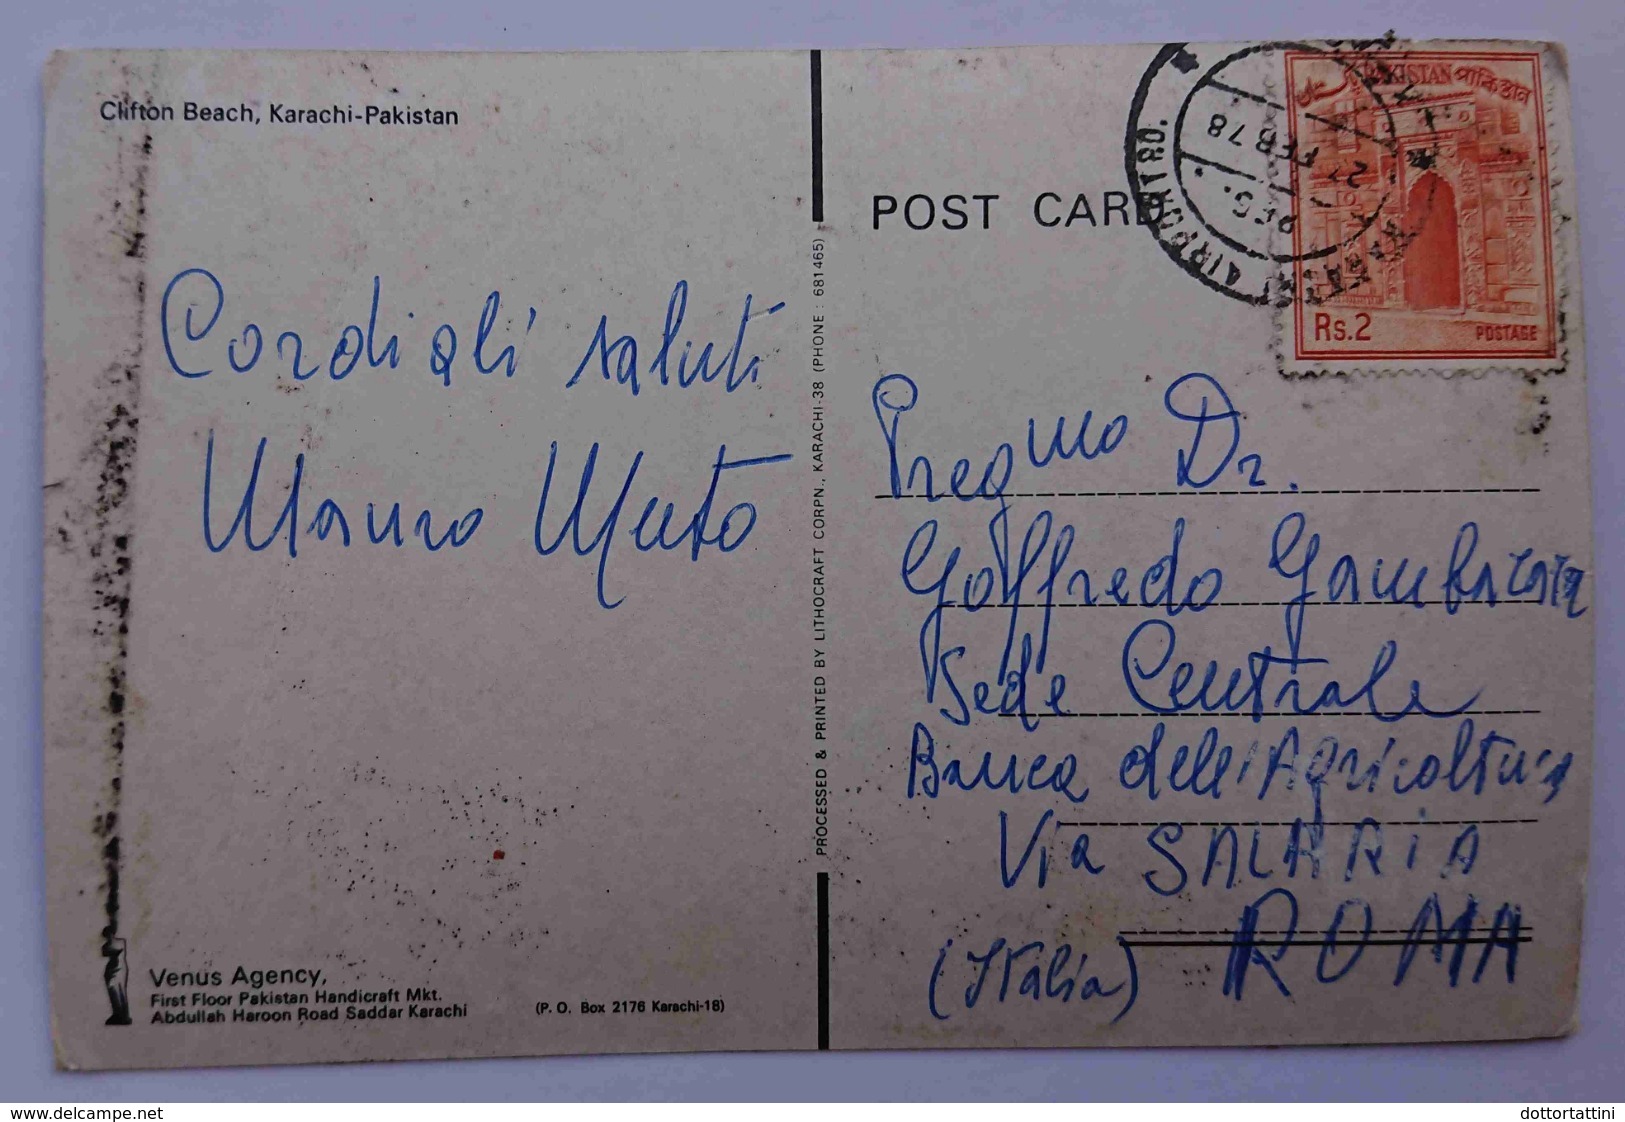 Clifton Beach, Karachi-Pakistan
Cordiali saluti
Mauro Muto
Venus Agency,
First Floor Pakistan Handicraft Mkt.
Abdullah Haroon Road Saddar Karachi
(P. O. Box 2176 Karachi-18)
PROCESSED & PRINTED BY LITHOCRAFT CORPN., KARACHI-38 (PHONE : 681465)
POST CARD
PAKISTAN পাকিস্তান
Rs.2
POSTAGE
AIRPORT TRO.
REG.
FEB 78
Pregmo Dr.
Goffredo
Sede Centrale
Banca dell'Agricoltura
Via SALARIA
ROMA
(Italia)
www.delcampe.net
dottortattini